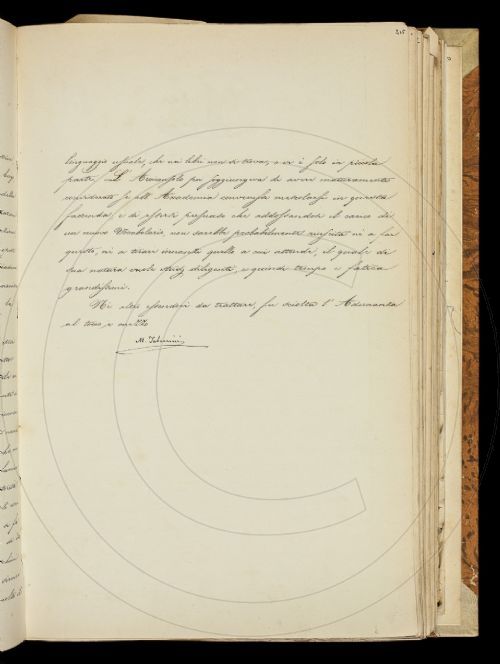 215
linguaggio usuale, che ne' libri non si trova, o vi è solo in piccola
parte. L' Arciconsolo poi soggiungeva di avere maturamente
considerato se all' Accademia convenisse mescolarsi in questa
faccenda, e di essersi persuaso che addossandosi il carico di
un nuovo Vocabolario, non sarebbe probabilmente riuscita nè a far
questo, nè a tirare innanzi quello a cui attende, il quale di
sua natura vuole studj diligenti, e quindi tempo e fatica
grandissimi.
Nè altro essendovi da trattare, fu sciolta l' Adunanza
al tocco e mezzo
M. Tabarrini